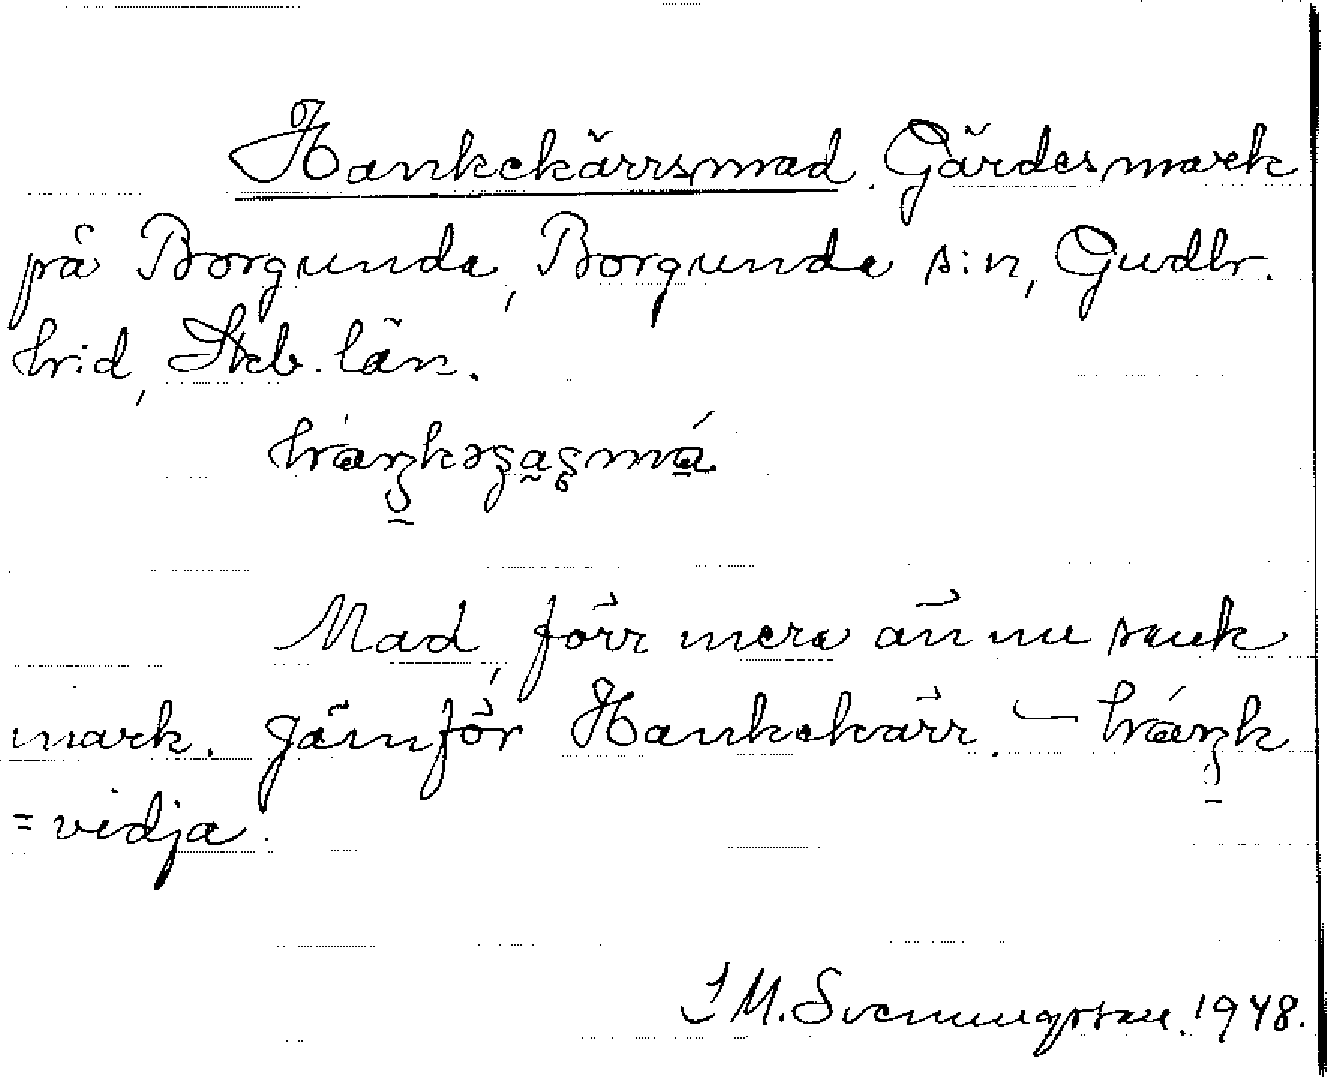 Hankekärrsmad. Gärdesmark
på Borgunda, Borgunda s:n, Gudhr.
hrid, Skb. län.
Mad, förr mera än nu sank
mark. Jämför Hankekärr. –
= vidja.
I M. Svenungsson. 1948.